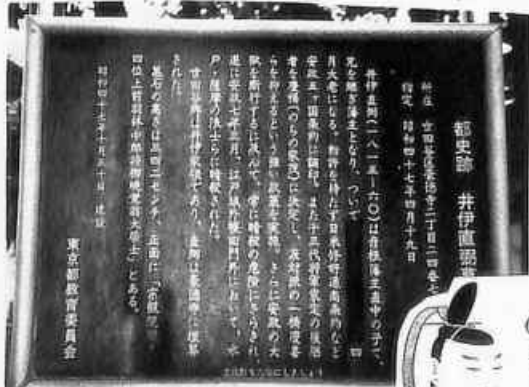 都史跡 井伊直弼
所在 世田谷区豪徳寺二丁目二四番七
指定 昭和四十七年四月十九日
井伊直弼(一八一五―六〇)は彦根藩主直中の子で、
兄を継ぎ藩主となり、ついで 四
月大老になる。勅許を待たず日米修好通商条約など
安政五ヶ国条約に調印。また十三代将軍家定の後継
者を慶福(のちの家茂)に決定し、反対派の一橋慶喜
らを抑えるという強い政策を実施。さらに安政の大
獄を断行するに及んで、常に暗殺の危険にさらされ、
遂に安政七年三月、江戸城外桜田門外において、水
戸・薩摩の浪士らに暗殺された。
世田谷領は井伊家領であり、直弼は豪徳寺に埋葬
された。
墓石の高さは三四二センチ、正面に「宗観院
四位上前羽林中郎将柳暁覚翁大居士」とある。
昭和四十七年十月三十日 建設
東京都教育委員会
文化財を大切にしましょう